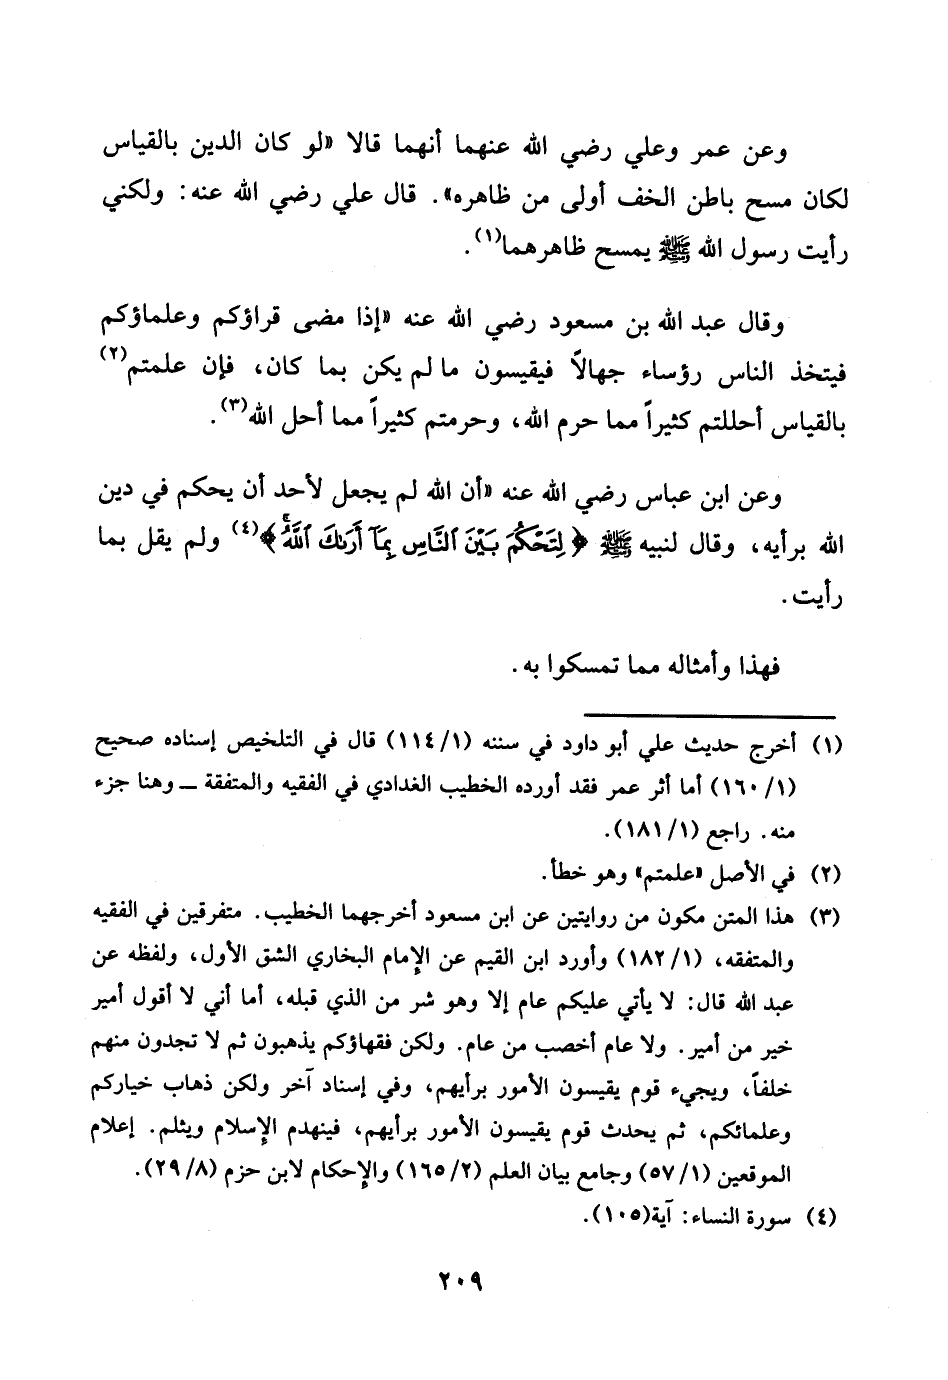 وعن عمر وعلي رضي الله عنهما أنهما قالا «لو كان الدين بالقياس
لكان مسح باطن الخف أولى من ظاهره». قال علي رضي الله عنه: ولكني
رأيت رسول الله ﷺ يمسح ظاهرهما(١).
وقال عبد الله بن مسعود رضي الله عنه «إذا مضى قراؤكم وعلماؤكم
فيتخذ الناس رؤساء جهالاً فيقيسون ما لم يكن بما كان، فإن علمتم(٢)
بالقياس أحللتم كثيراً مما حرم الله، وحرمتم كثيراً مما أحل الله(٣).
وعن ابن عباس رضي الله عنه «أن الله لم يجعل لأحد أن يحكم في دين
الله برأيه، وقال لنبيه ﷺ ﴿لِتَحْكُمَ بَيْنَ ٱلنَّاسِ بِمَآ أَرَىٰكَ ٱللَّهُۚ﴾(٤) ولم يقل بما
رأيت.
فهذا وأمثاله مما تمسكوا به.
(١) أخرج حديث علي أبو داود في سننه (١١٤/١) قال في التلخيص إسناده صحيح
(١٦٠/١) أما أثر عمر فقد أورده الخطيب الغدادي في الفقيه والمتفقة ــ وهنا جزء
منه. راجع (١٨١/١).
(٢) في الأصل «علمتم» وهو خطأ.
(٣) هذا المتن مكون من روايتين عن ابن مسعود أخرجهما الخطيب. متفرقين في الفقيه
والمتفقه، (١٨٢/١) وأورد ابن القيم عن الإمام البخاري الشق الأول، ولفظه عن
عبد الله قال: لا يأتي عليكم عام إلا وهو شر من الذي قبله، أما أني لا أقول أمير
خير من أمير. ولا عام أخصب من عام. ولكن فقهاؤكم يذهبون ثم لا تجدون منهم
خلفاً، ويجيء قوم يقيسون الأمور برأيهم، وفي إسناد آخر ولكن ذهاب خياركم
وعلمائكم، ثم يحدث قوم يقيسون الأمور برأيهم، فينهدم الإسلام ويثلم. إعلام
الموقعين (٥٧/١) وجامع بيان العلم (١٦٥/٢) والإحكام لابن حزم (٢٩/٨).
(٤) سورة النساء: آية(١٠٥).
٢٠٩